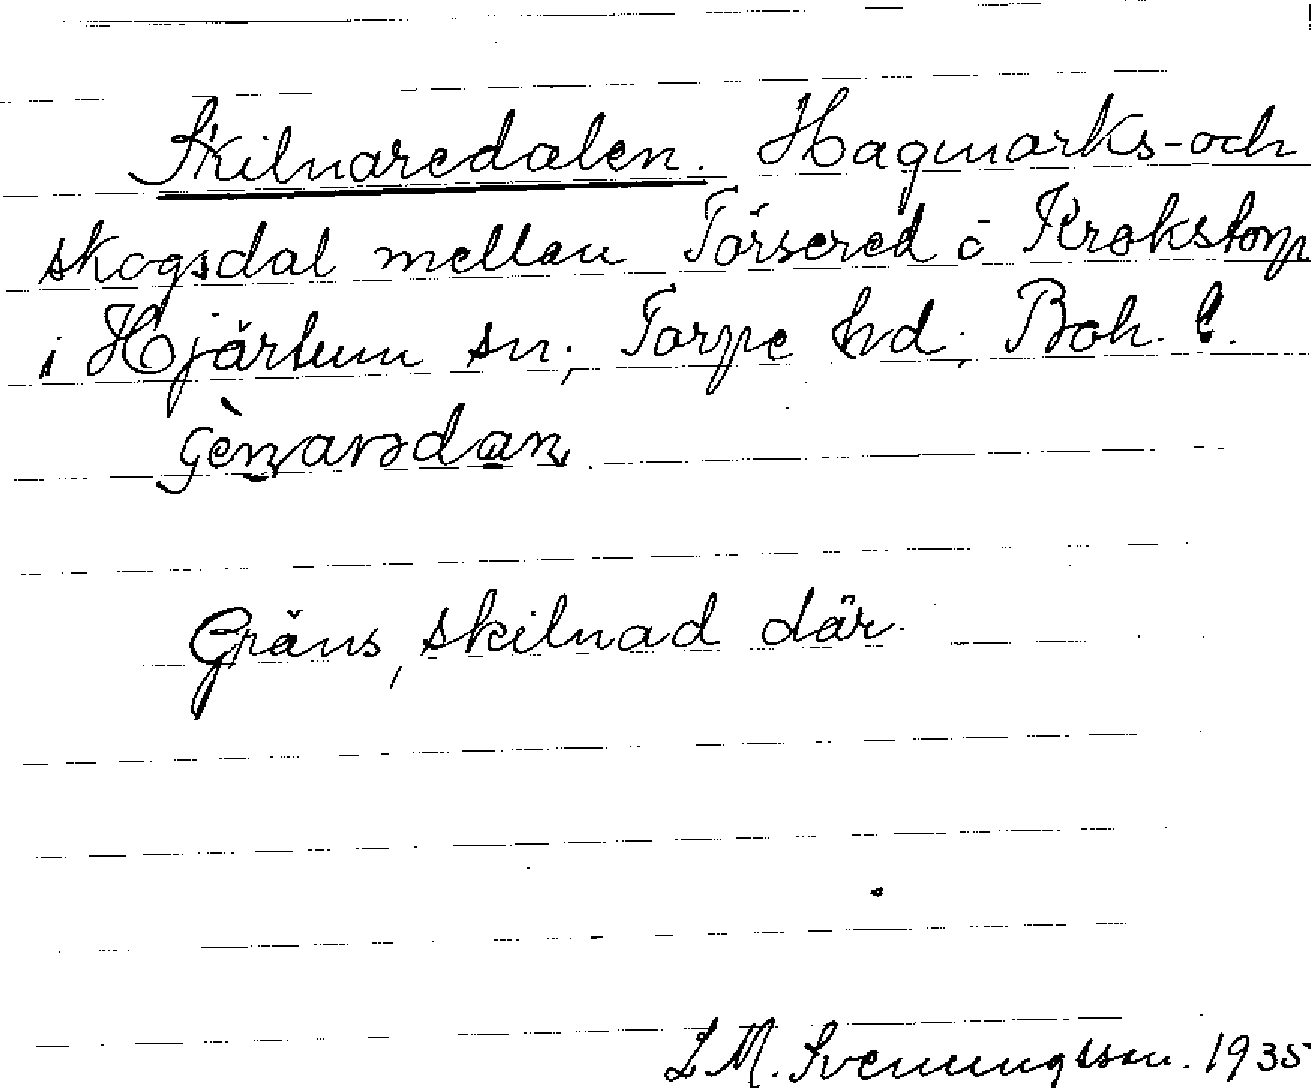 Skilnaredalen. Hagmarks- och
skogsdal mellan Torsered o Krokstorp
i Hjärtum sn; Torpe hd; Boh. l.
Gräns, skilnad där.
L M. Svenungsson. 1935